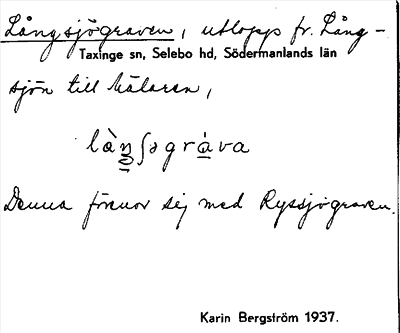 Långsjögraven, utlopp fr. Lång-
Taxinge sn, Selebo hd, Södermanlands län
sjön till Mälaren,
làŋʃɘgrȧva
Denna förenar sig med Ryssjögraven.
Karin Bergström 1937.